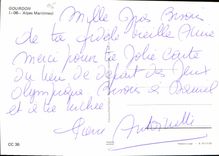 GOURDON
I - 06 - Alpes Maritimes
Mille Gros Bisous
de ta fidèle vieille
Merci pour ta Jolie Carte
du lieu de départ des Jeux
Olympique Bisous à
et à
Antonelli
CC 36